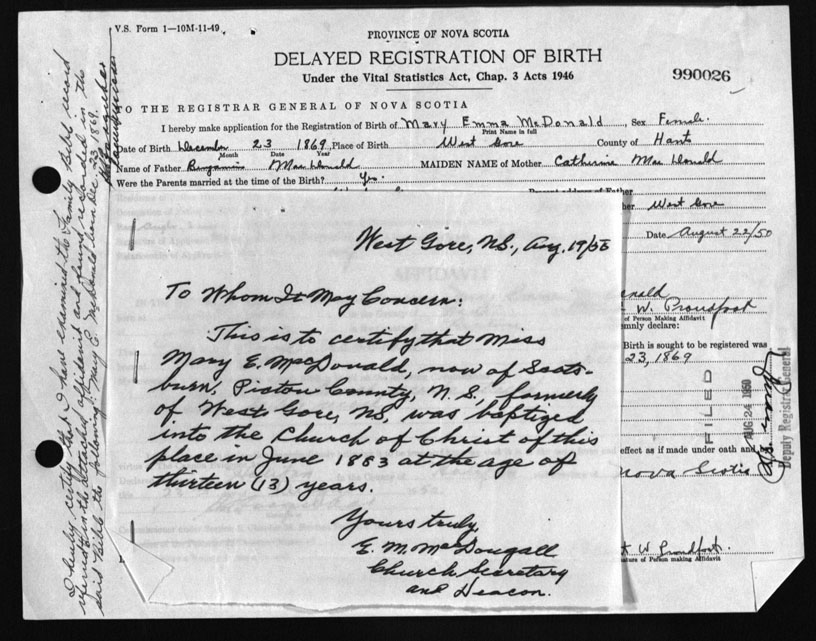 V.S. Form 1—10M-11-49
PROVINCE OF NOVA SCOTIA
DELAYED REGISTRATION OF BIRTH
Under the Vital Statistics Act, Chap. 3 Acts 1946
990026
TO THE REGISTRAR GENERAL OF NOVA SCOTIA
I hereby make application for the Registration of Birth of Mary Emma McDonald, Sex Female.
Print Name in full
Date of Birth December 23 1869, Place of Birth West Gore County of Hants
Month Date Year
Name of Father Benjamin MacDonald MAIDEN NAME of Mother Catherine MacDonald
Were the Parents married at the time of the Birth? Yes.
West Gore
Date August 22/50
AFFIDAVIT
W. Proudfoot
of Person Making Affidavit
emnly declare:
Birth is sought to be registered was
23, 1869
FILED
AUG 24 1950
Deputy Registrar General
effect as if made under oath and
Nova Scotia
W Proudfoot.
ature of Person making Affidavit
West Gore, N.S., Aug. 19/50
To Whom It May Concern:
This is to certify that Miss
Mary E. McDonald, now of Scots-
burn, Pictou County, N.S., formerly
of West Gore, NS, was baptized
into the Church of Christ of this
place in June 1883 at the age of
thirteen (13) years.
Yours truly,
E. M. McDougall
Church Secretary
and Deacon.
I hereby certify that I have examined the Family Bible record
referred to in the attached affidavit and found recorded in the
said Bible the following: Mary E. McDonald born Dec. 23, 1869.